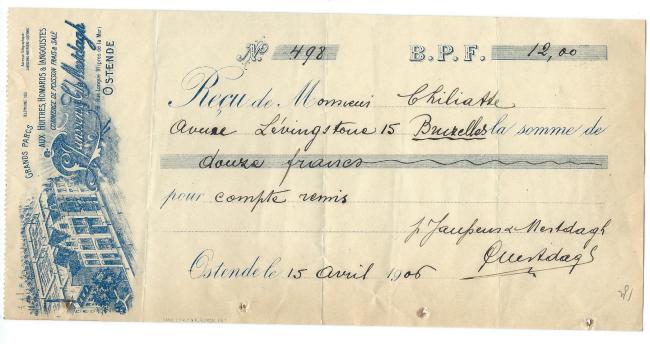 GRANDS PARCS
AUX HUITRES, HOMARDS & LANGOUSTES
COMMERCE DE POISSON FRAIS & SALÉ
& Mestdagh
Longue
de la Mer
OSTENDE
No 498 B.P.F. 12,00
Reçu de Monsieur Chiliatte
Avenue Lévingstone 15 Bruxelles la somme de
douze francs
pour compte remis
Mestdagh
Ostende le 15 Avril 1906